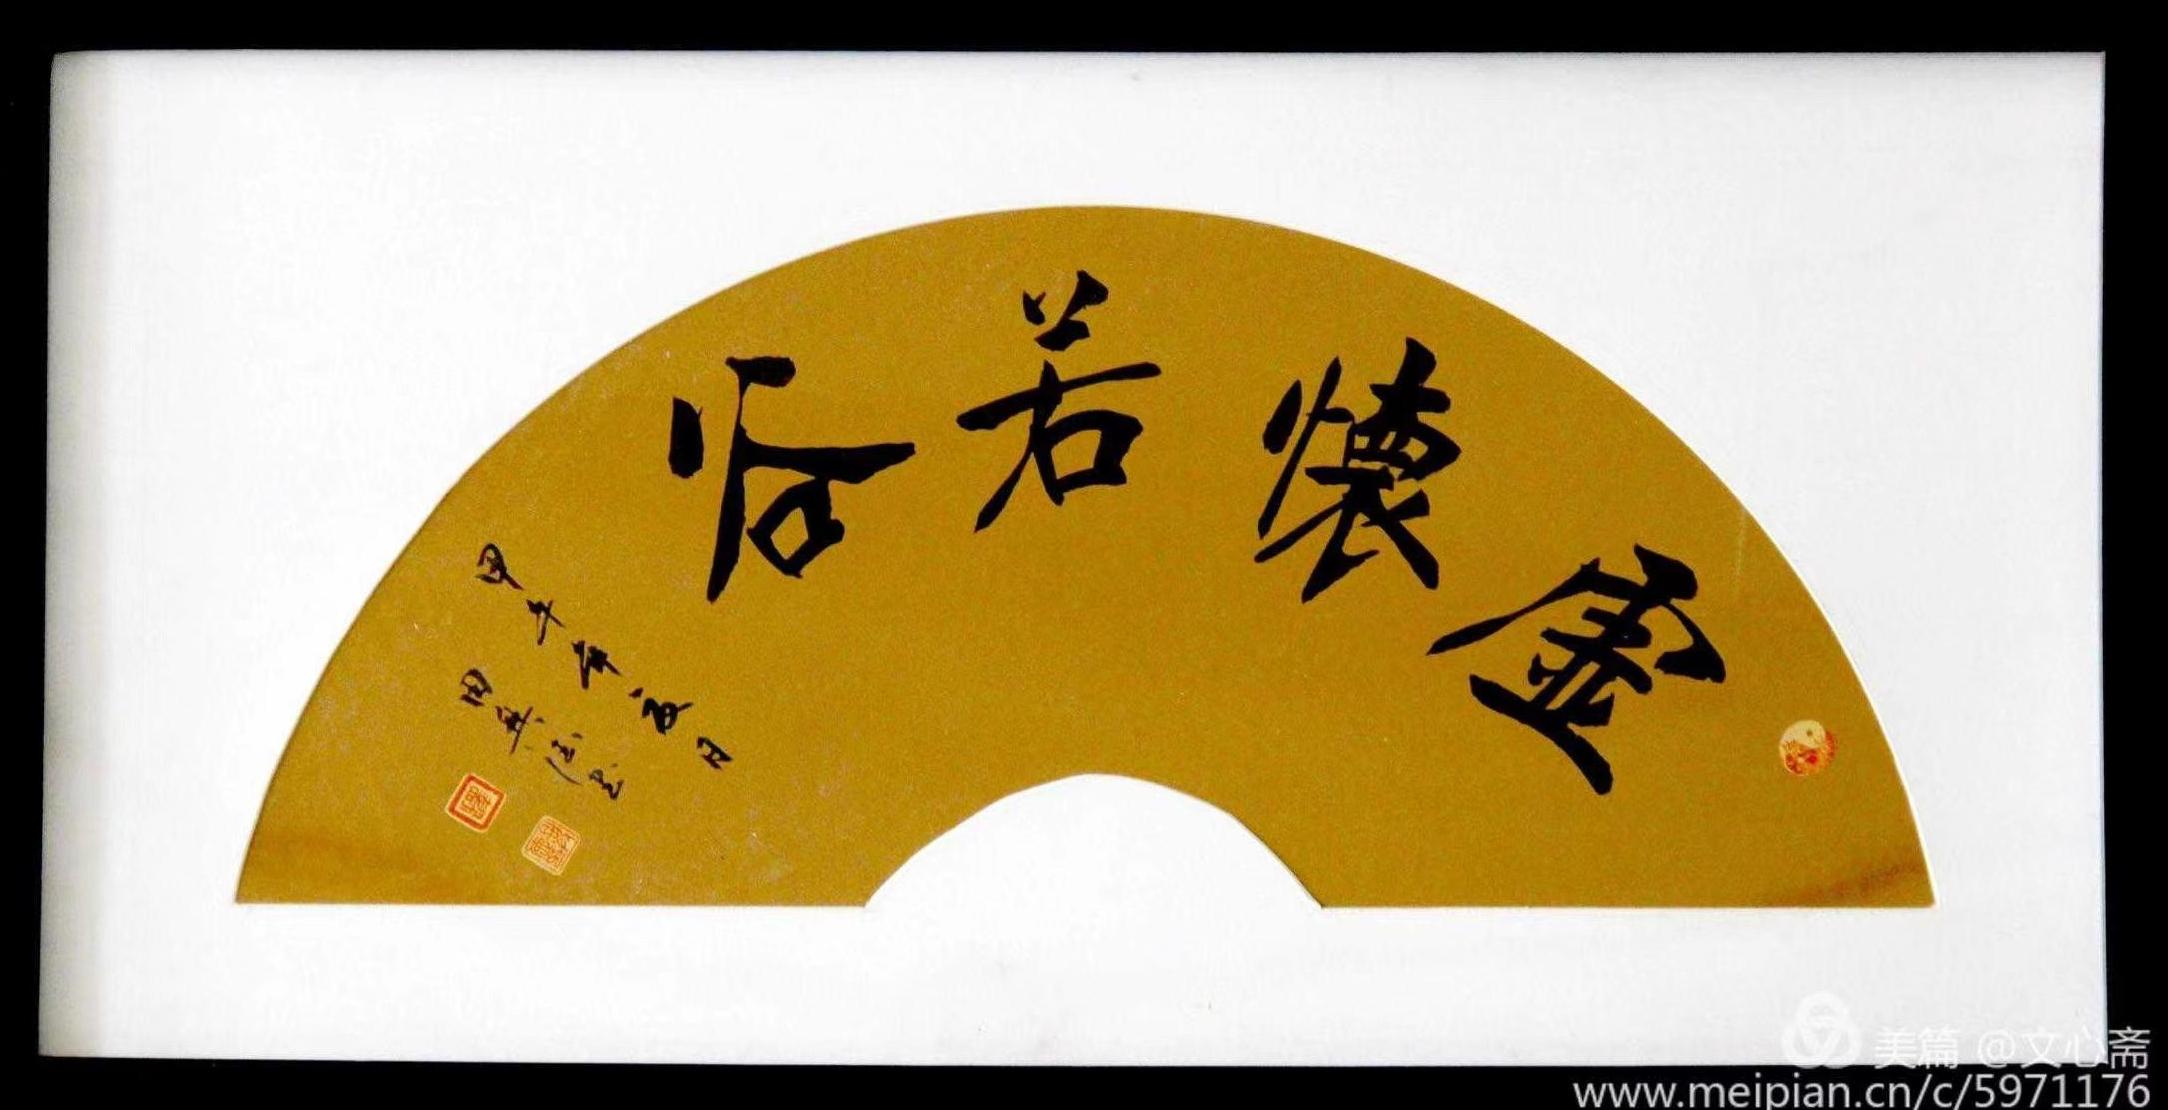 虚懷若谷
甲午年夏日
美篇 @文心斋
www.meipian.cn/c/5971176